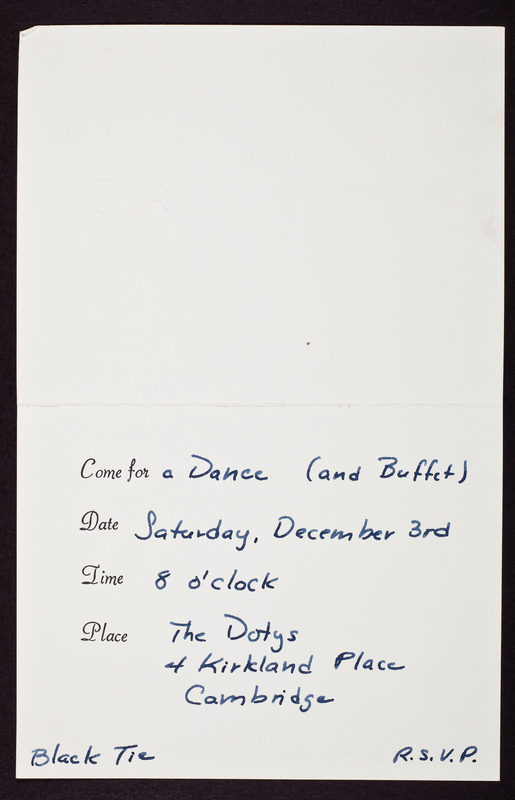 Come for a Dance (and Buffet)
Date Saturday, December 3rd
Time 8 o'clock
Place The Dotys
4 Kirkland Place
Cambridge
Black Tie R.S.V.P.